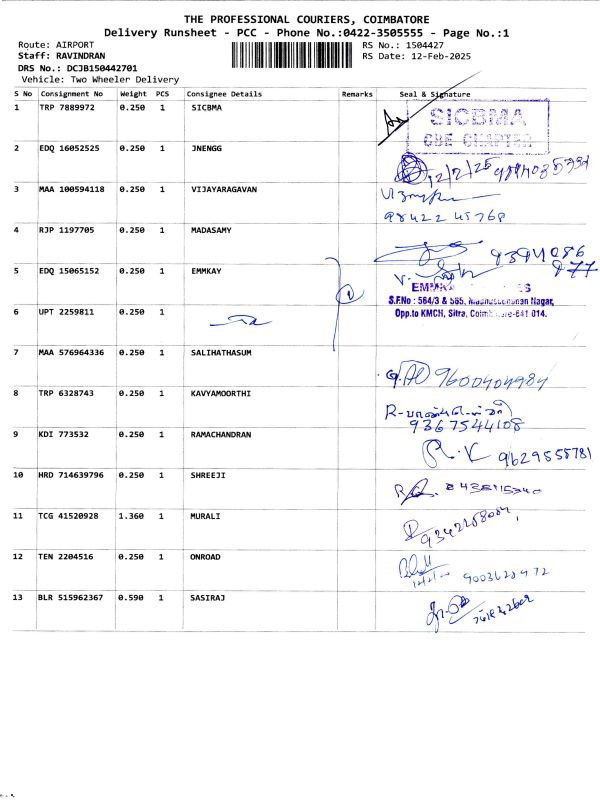 THE PROFESSIONAL COURIERS, COIMBATORE
Delivery Runsheet - PCC - Phone No.:0422-3505555 - Page No.:1
Route: AIRPORT RS No.: 1504427
Staff: RAVINDRAN RS Date: 12-Feb-2025
DRS No.: DCJB150442701
Vehicle: Two Wheeler Delivery
S No Consignment No Weight PCS Consignee Details Remarks Seal & Signature
1 TRP 7889972 0.250 1 SICBMA
SICBMA
CBE CHAPTER
2 EDQ 16052525 0.250 1 JNENGG
12/2/25
3 MAA 100594118 0.250 1 VIJAYARAGAVAN
98422 45768
4 RJP 1197705 0.250 1 MADASAMY
9394086
977
5 EDQ 15065152 0.250 1 EMMKAY
S.F.No : 564/3 & 565, Nagar,
Opp.to KMCH, Sitra, 641 014.
6 UPT 2259811 0.250 1
7 MAA 576964336 0.250 1 SALIHATHASUM
9600404984
8 TRP 6328743 0.250 1 KAVYAMOORTHI
9367544108
9 KDI 773532 0.250 1 RAMACHANDRAN
9629555781
10 HRD 714639796 0.250 1 SHREEJI
11 TCG 41520928 1.360 1 MURALI
12 TEN 2204516 0.250 1 ONROAD
13 BLR 515962367 0.590 1 SASIRAJ